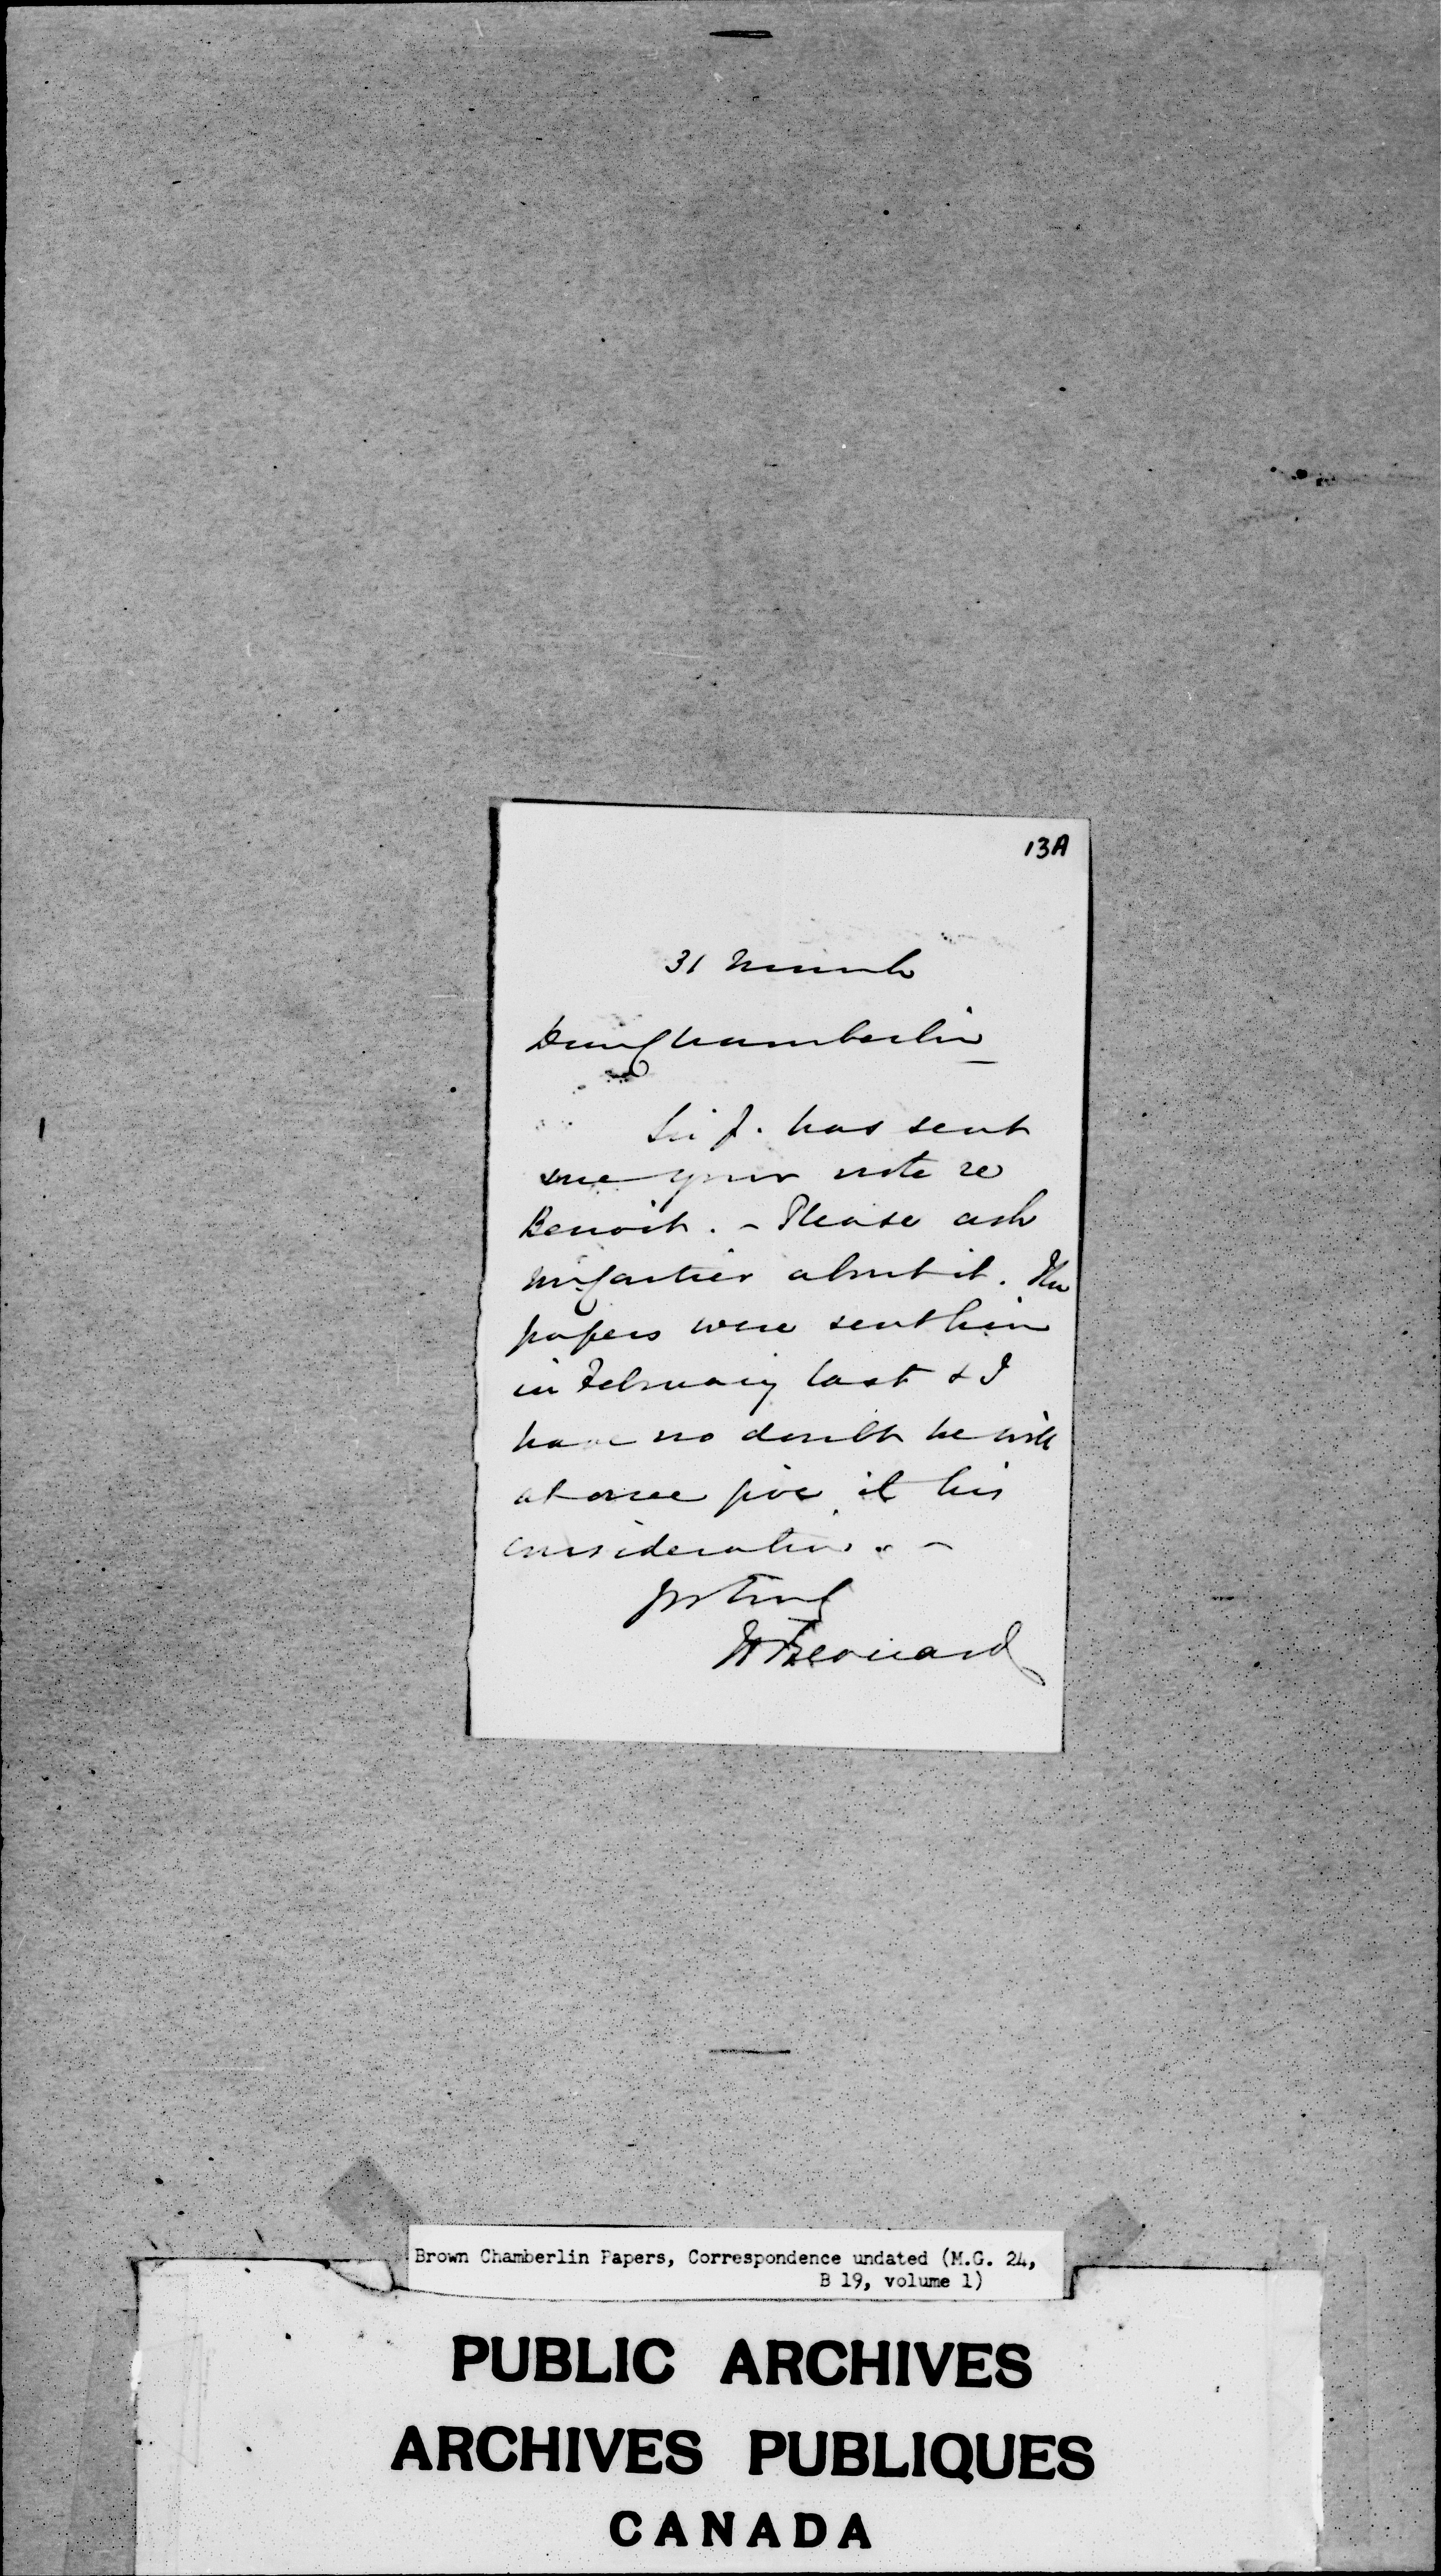 13A
31 March
Dear Chamberlin
Sir J. has sent
me your note re
Benoit. - Please ask
Mr Cartier about it. The
papers were sent him
in February last & I
have no doubt he will
at once give it his
consideration. -
Yrs truly
H Bernard
Brown Chamberlin Papers, Correspondence undated (M.G. 24,
B 19, volume 1)
PUBLIC ARCHIVES
ARCHIVES PUBLIQUES
CANADA